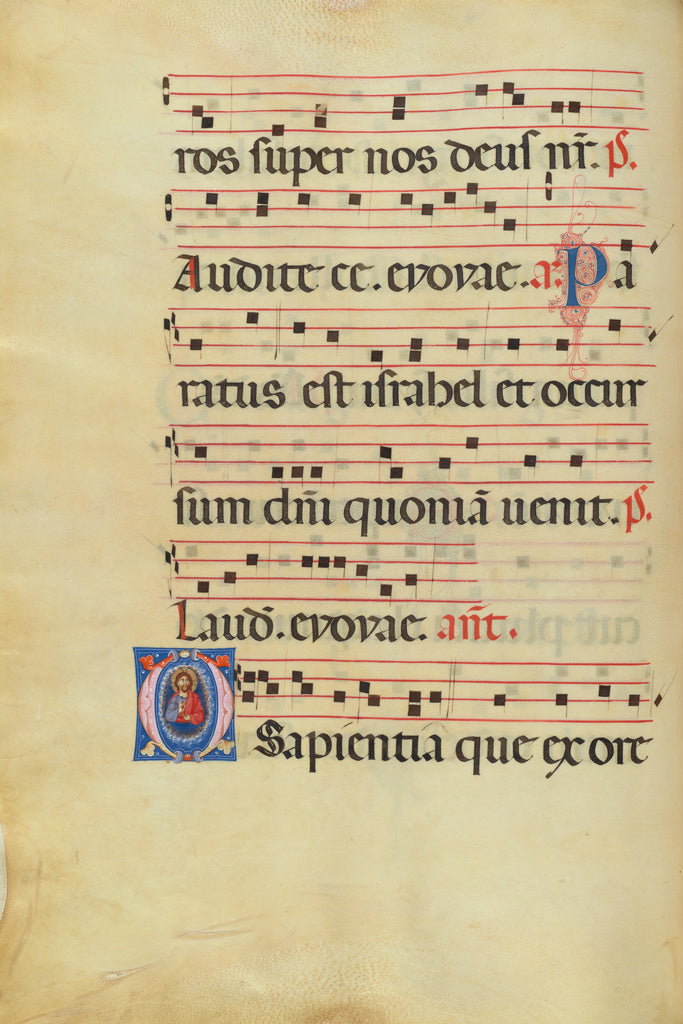 ros super nos deus nr̄. ps.
Audite ce. evovae. a. Pa
ratus est israhel et occur
sum dn̄i quoniā uenit. ps.
Laud̄. evovae. ant̄.
O Sapientia que ex ore